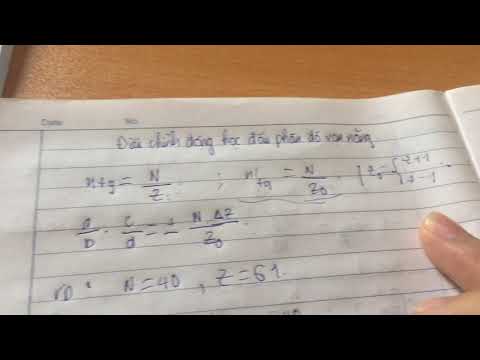 Date No
Điều chỉnh động học đầu phân độ vạn năng
n tg = N/Z ; n' tg = N/Z₀ { Z₀ = { Z+1
Z-1
a/b · c/d = ± N ΔZ/Z₀
VD: N=40, Z=61